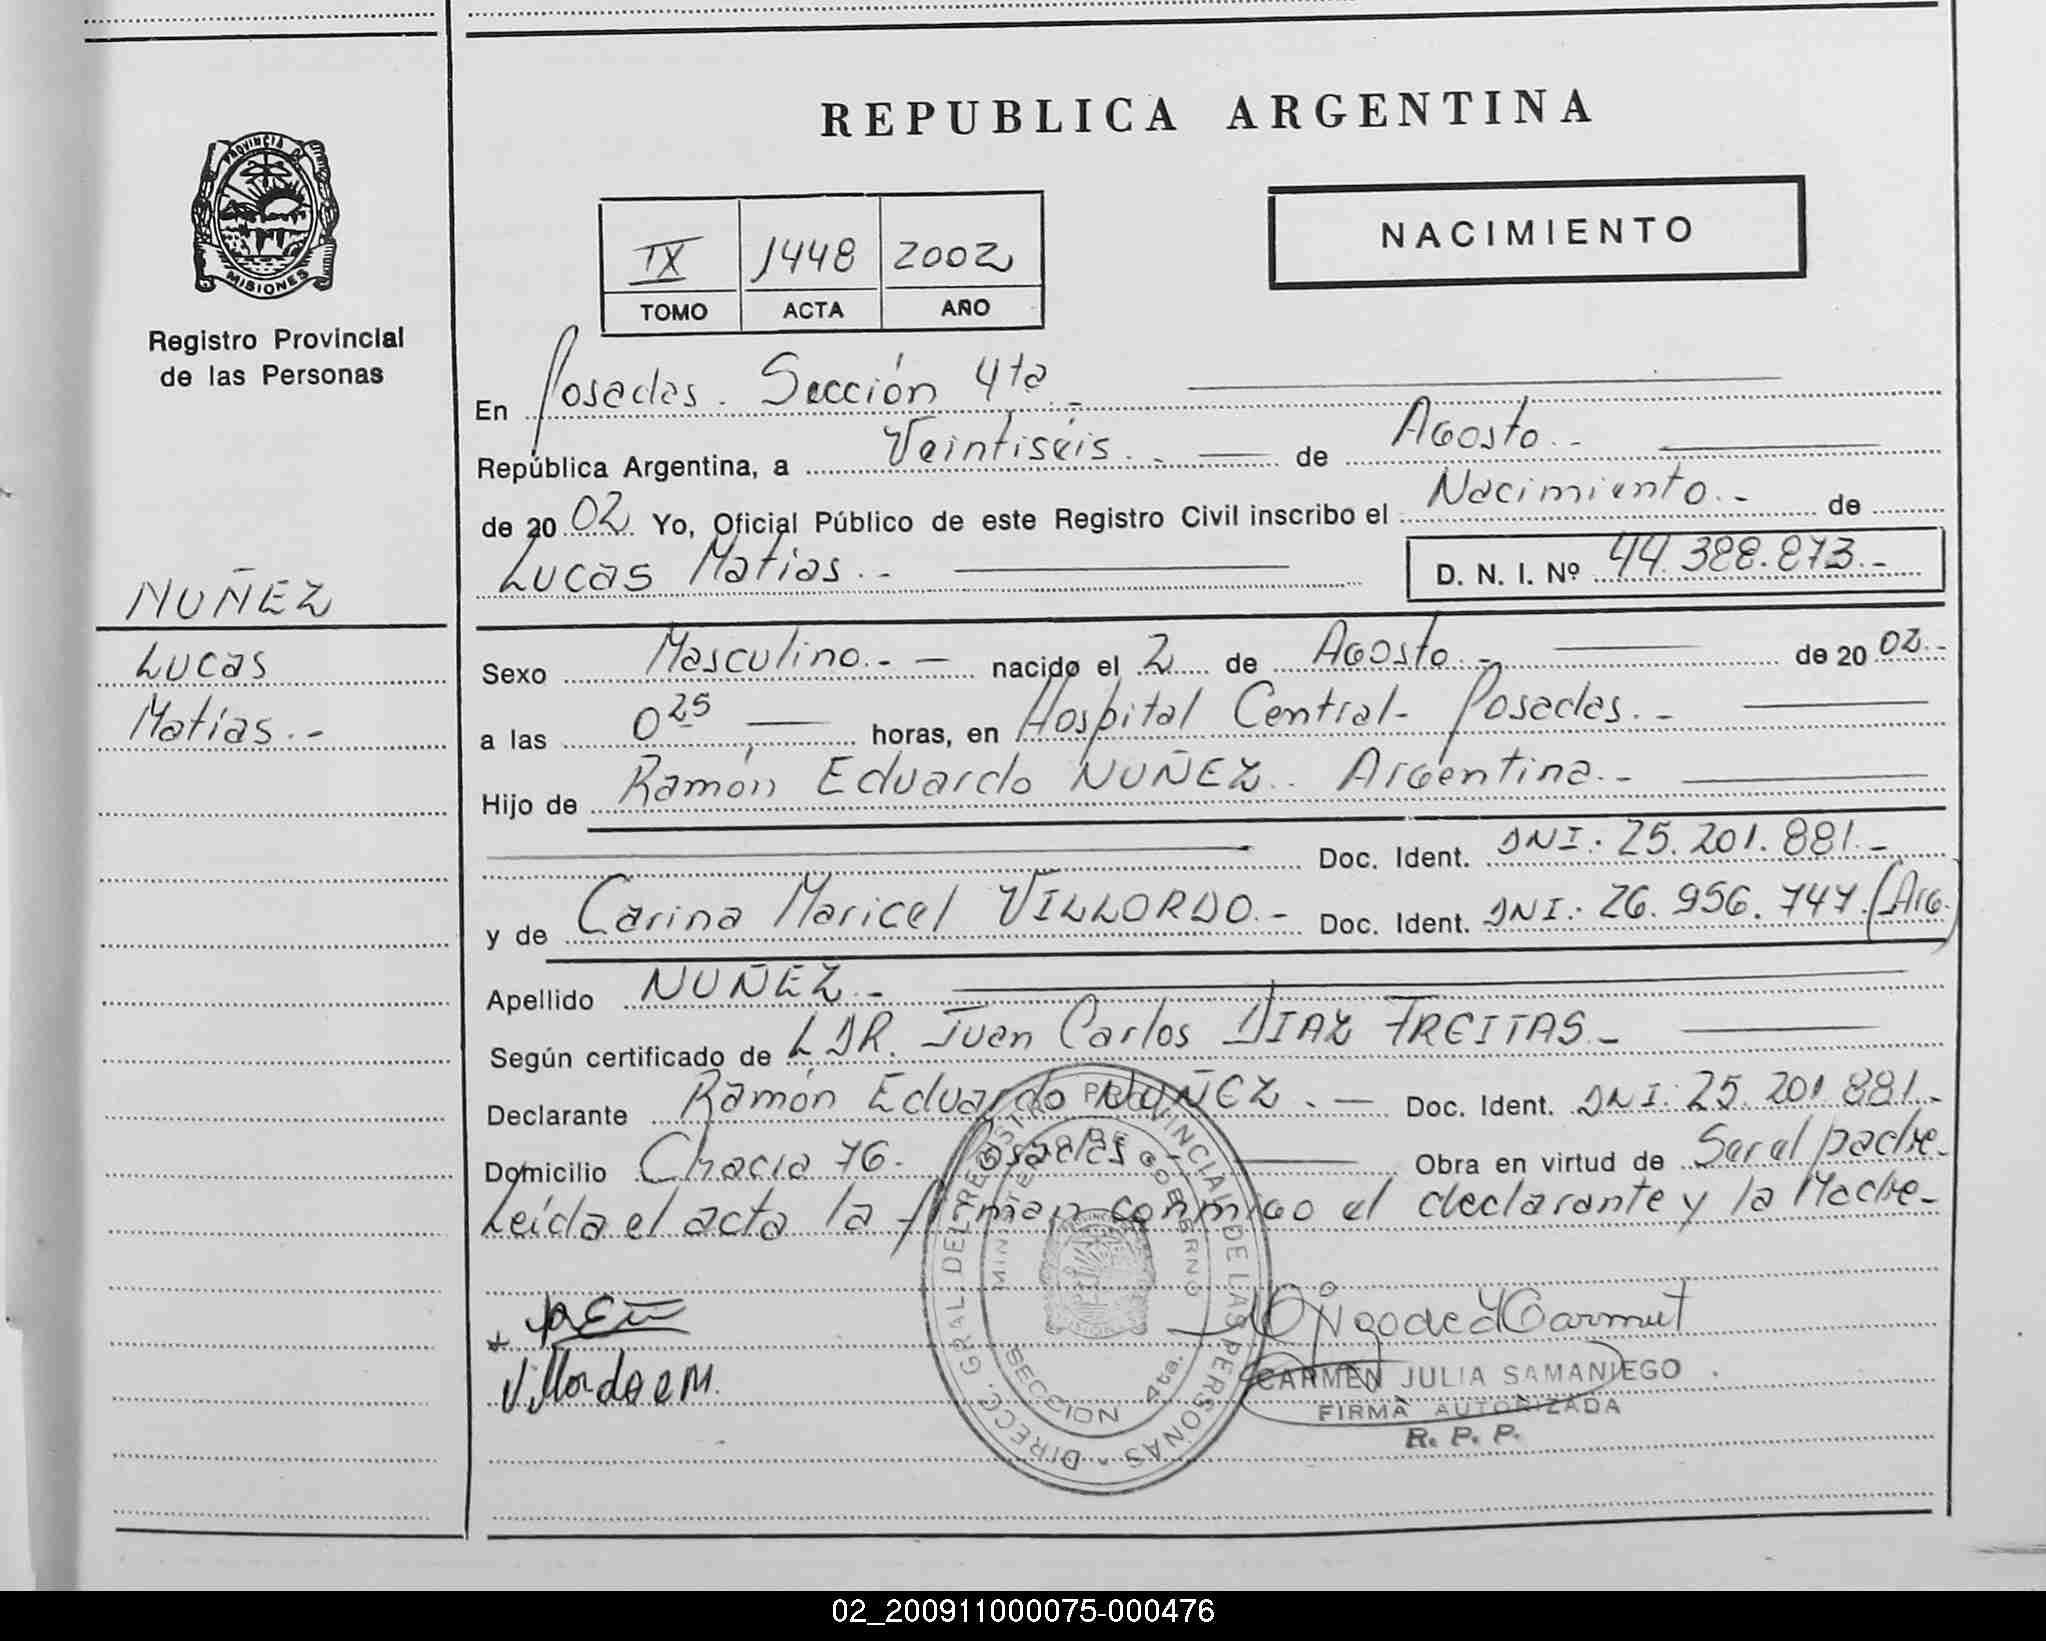 REPUBLICA ARGENTINA
PROVINCIA DE
MISIONES
Registro Provincial
de las Personas
NACIMIENTO
IX 1448 2002
TOMO ACTA AÑO
En Posadas. Sección 4ta.-
República Argentina, a Veintiséis.- de Agosto.-
de 20 02 Yo, Oficial Público de este Registro Civil inscribo el Nacimiento.- de
Lucas Matías.- D. N. I. Nº 44.388.873.-
NUÑEZ
Lucas
Matías.-
Sexo Masculino.- nacido el 2 de Agosto.- de 20 02.-
a las 0 25 horas, en Hospital Central- Posadas.-
Hijo de Ramón Eduardo NUÑEZ. Argentina.-
Doc. Ident. DNI: 25.201.881.-
y de Carina Maricel VILLORDO.- Doc. Ident. DNI: 26.956.747.(Arg.)
Apellido NUÑEZ.-
Según certificado de DR. Juan Carlos DIAZ FREITAS.-
Declarante Ramón Eduardo NUÑEZ.- Doc. Ident. DNI: 25.201.881.-
Domicilio 76. Posadas.- Obra en virtud de Ser el padre.
Leída el acta la firman conmigo el declarante y la Madre-
DIRECC. GRAL. DEL REGISTRO PROVINCIAL DE LAS PERSONAS
MINISTERIO DE GOBIERNO
SECCION 4ta.
Villordo M.
CARMEN JULIA SAMANIEGO
FIRMA AUTORIZADA
R. P. P.
02_200911000075-000476